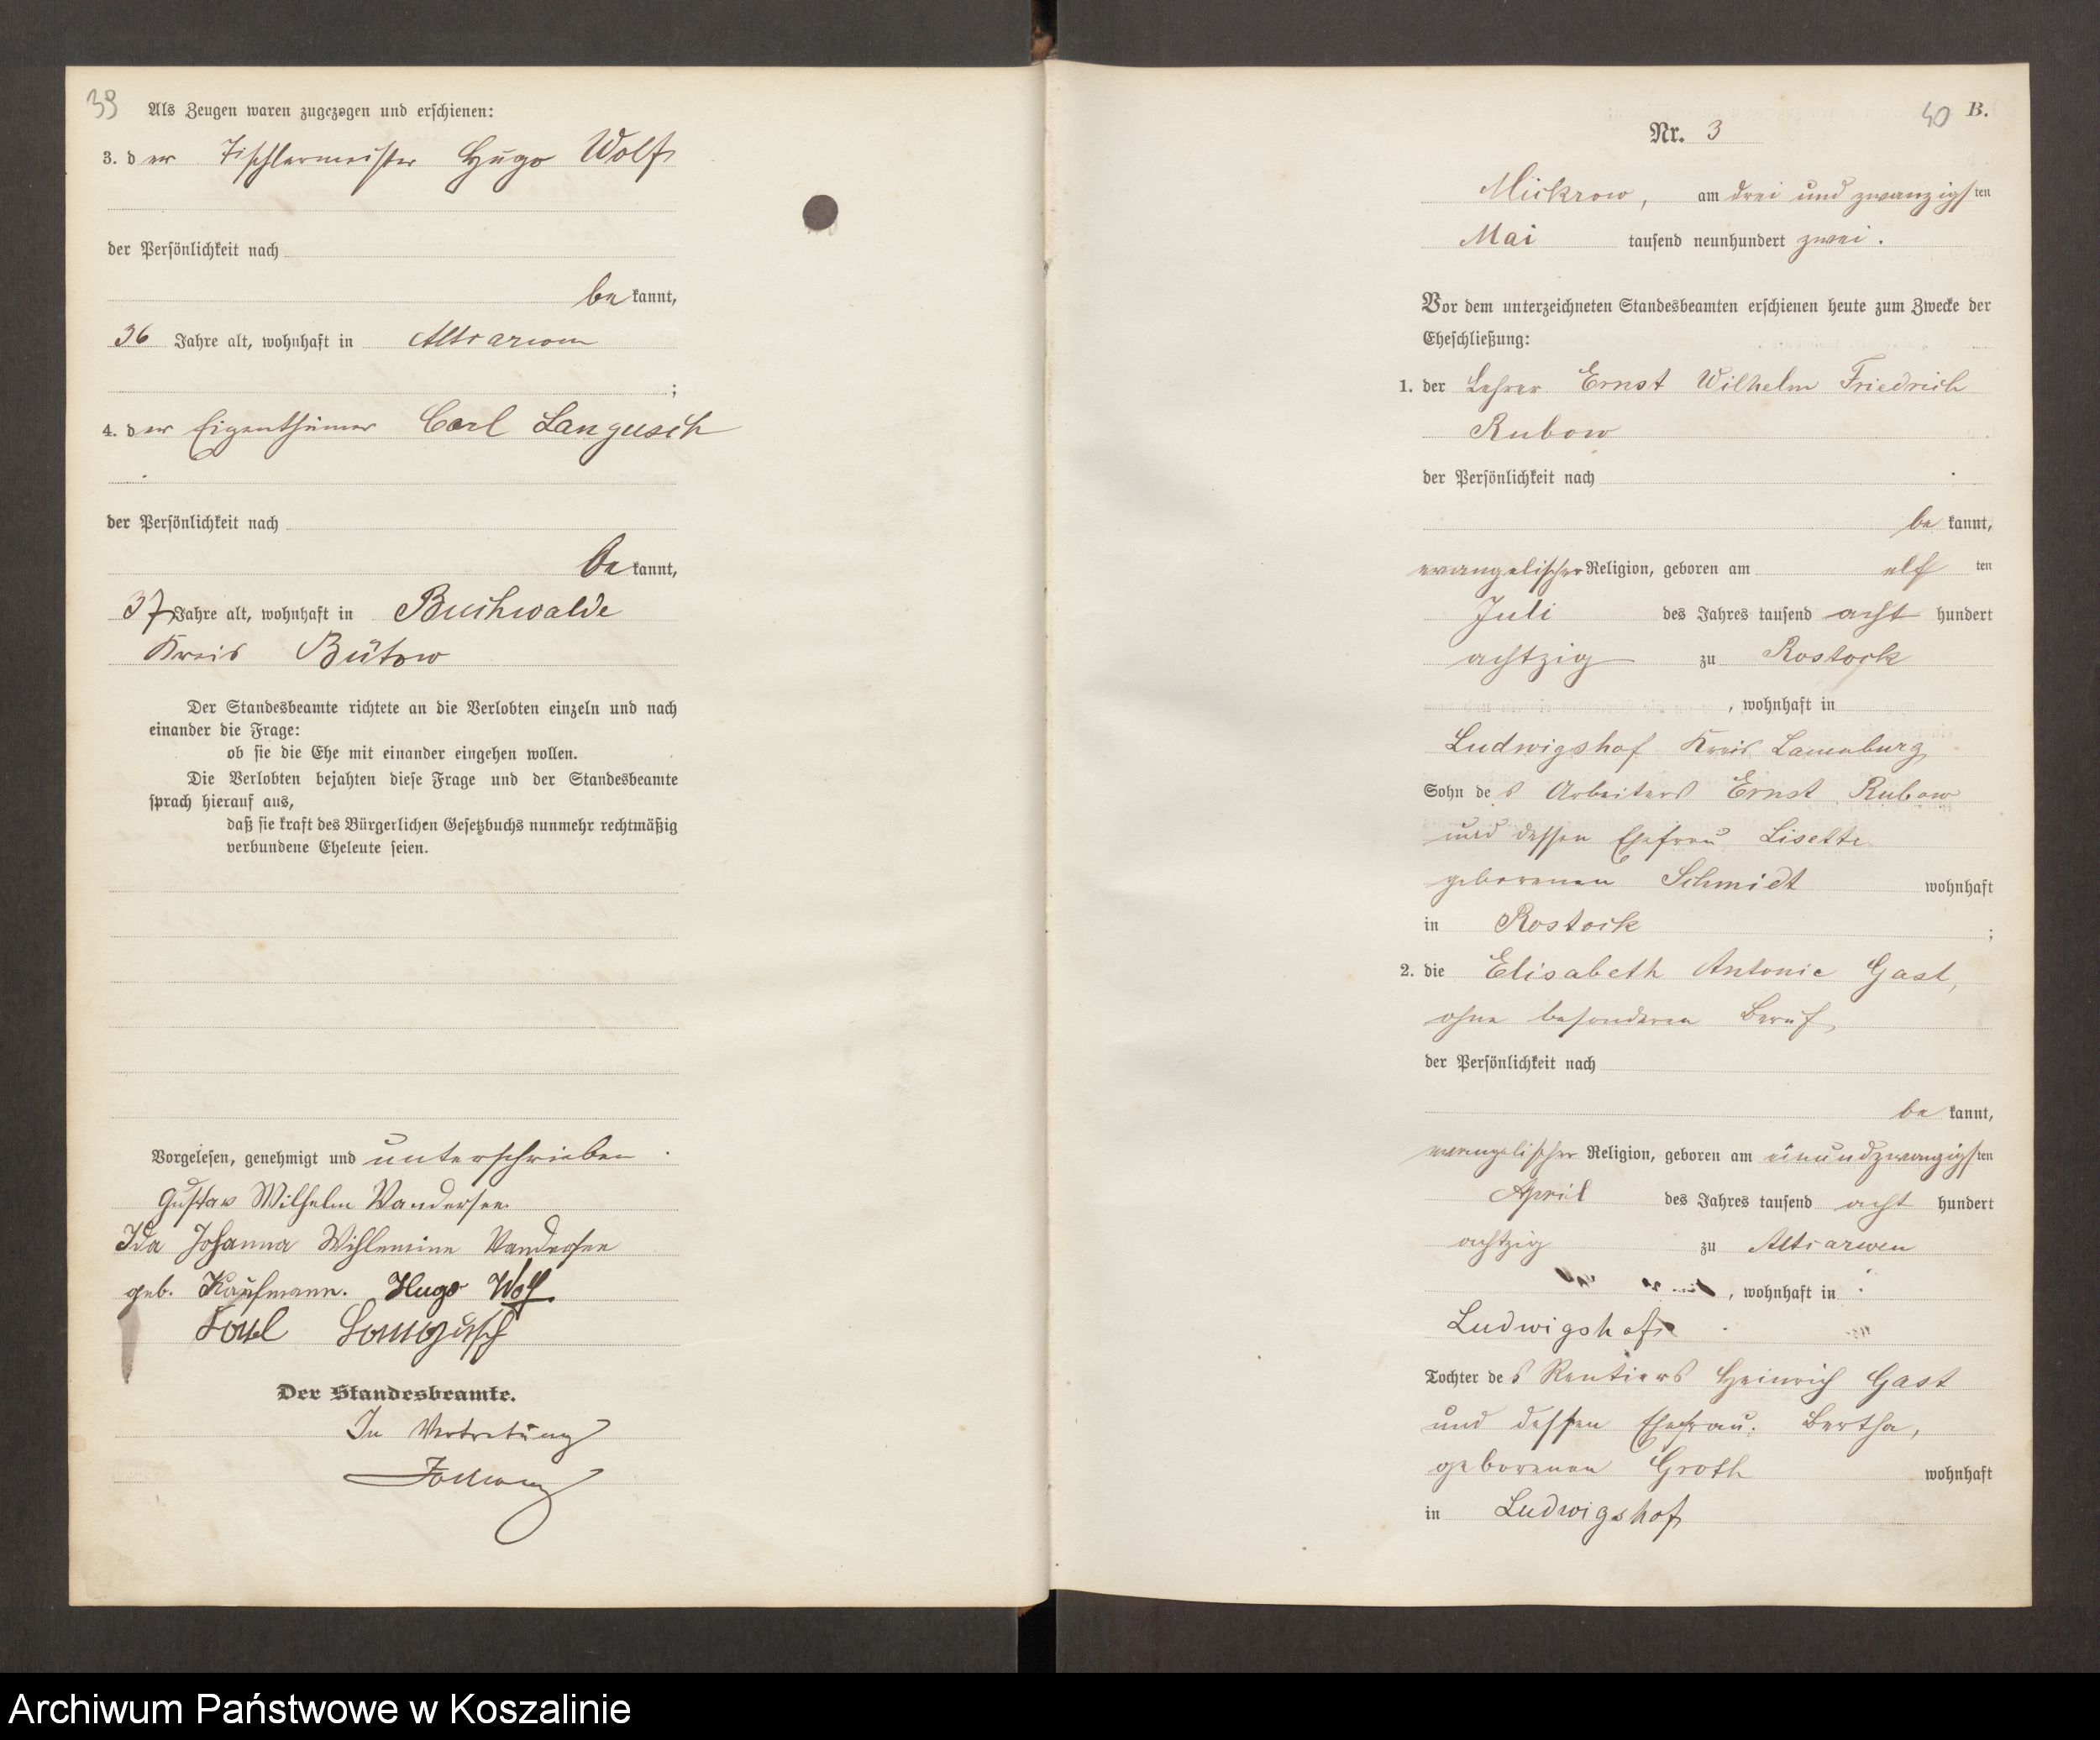 39
Als Zeugen waren zugezogen und erschienen:
3. der Tischlermeister Hugo Wolf
der Persönlichkeit nach
bekannt,
36 Jahre alt, wohnhaft in Altsarwen
;
4. der Eigenthümer Carl Langusch
der Persönlichkeit nach
bekannt,
37 Jahre alt, wohnhaft in Buchwalde
Kreis Bütow
Der Standesbeamte richtete an die Verlobten einzeln und nach
einander die Frage:
ob sie die Ehe mit einander eingehen wollen.
Die Verlobten bejahten diese Frage und der Standesbeamte
sprach hierauf aus,
daß sie kraft des Bürgerlichen Gesetzbuchs nunmehr rechtmäßig
verbundene Eheleute seien.
Vorgelesen, genehmigt und unterschrieben
Gustav Wilhelm Wandersee
Ida Johanna Wihlemine Wandersee
geb. Kaufmann. Hugo Wolf
Karl Langusch
Der Standesbeamte.
In Vertretung
40 B.
Nr. 3
Mickrow, am drei und zwanzigsten
Mai tausend neunhundert zwei.
Vor dem unterzeichneten Standesbeamten erschienen heute zum Zwecke der
Eheschließung:
1. der Lehrer Ernst Wilhelm Friedrich
Rubow
der Persönlichkeit nach
bekannt,
evangelischer Religion, geboren am elften
Juli des Jahres tausend achthundert
achtzig zu Rostock
, wohnhaft in
Ludwigshof Kreis Lauenburg
Sohn des Arbeiters Ernst Rubow
und dessen Ehefrau Lisette
geborenen Schmidt wohnhaft
in Rostock ;
2. die Elisabeth Antonie Gast,
ohne besonderen Beruf
der Persönlichkeit nach
bekannt,
evangelischer Religion, geboren am einundzwanzigsten
April des Jahres tausend achthundert
achtzig zu Altsarwen
, wohnhaft in
Ludwigshof
Tochter des Rentiers Heinrich Gast
und dessen Ehefrau Bertha,
geborenen Groth wohnhaft
in Ludwigshof
Archiwum Państwowe w Koszalinie